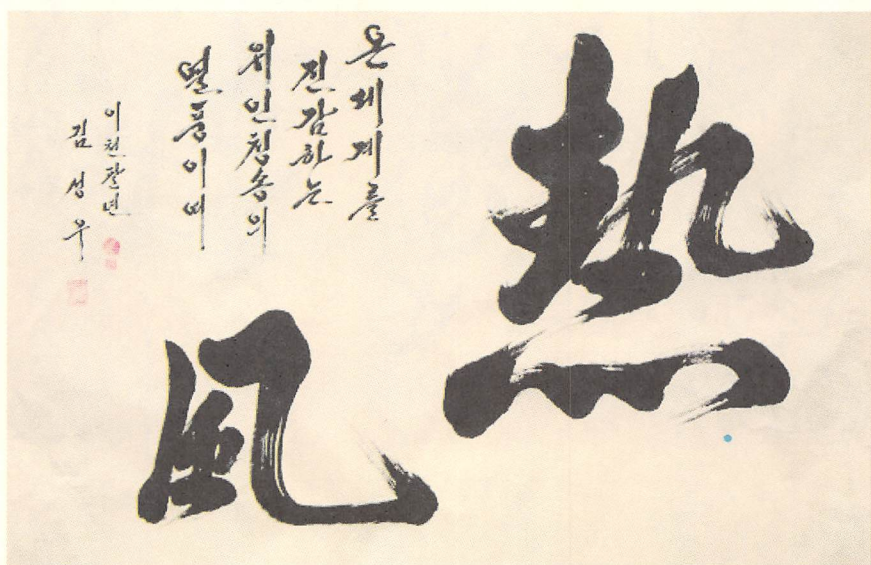 熱風
온 세계를
진감하는
위인칭송의
열풍이여
이천팔년
김성우